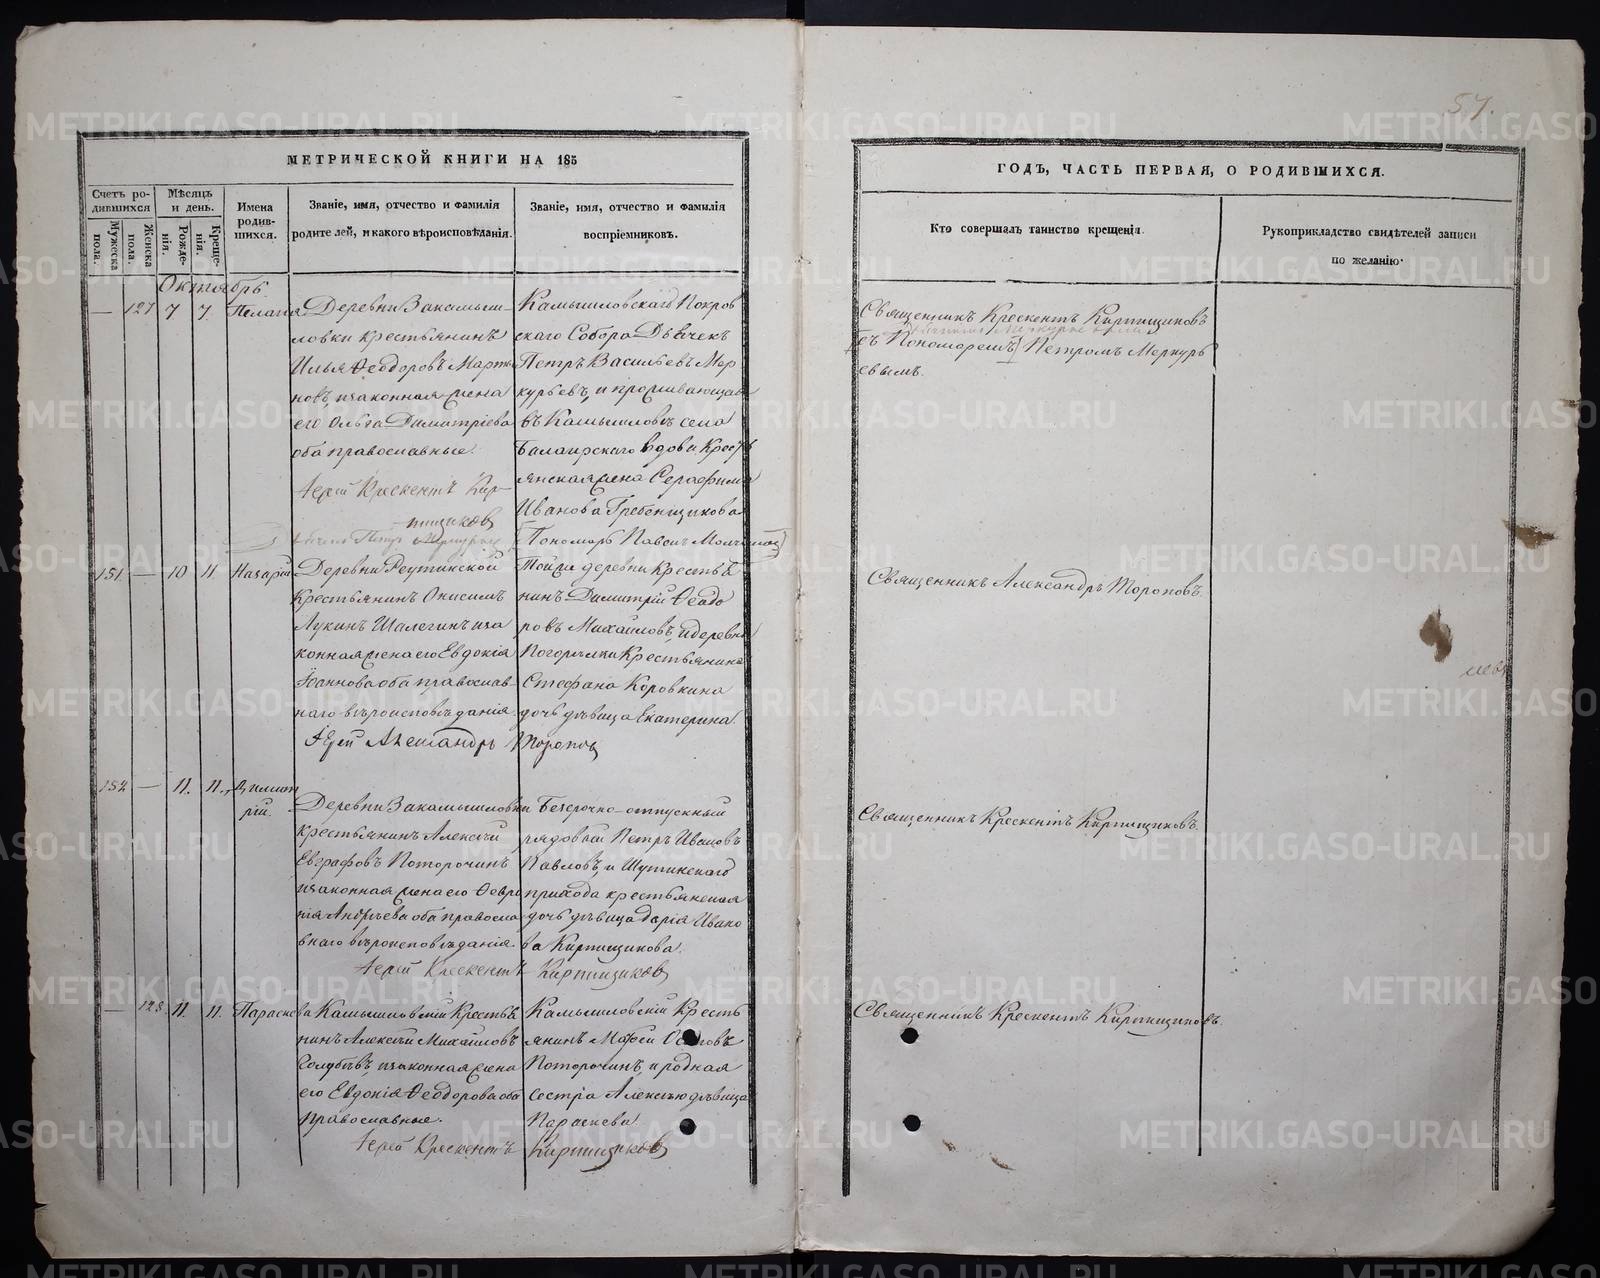 57.
МЕТРИЧЕСКОЙ КНИГИ НА 185
ГОДЪ, ЧАСТЬ ПЕРВАЯ, О РОДИВШИХСЯ.
Счетъ ро-
дившихся
Мужеска пола.
Женска пола.
Мѣсяцъ
и день.
Рожде-
нія.
Креще-
нія.
Имена
родив-
шихся.
Званіе, имя, отчество и фамилія
родителей, и какого вѣроисповѣданія.
Званіе, имя, отчество и фамилія
воспріемниковъ.
Кто совершалъ таинство крещенія.
Рукоприкладство свидѣтелей записи
по желанію.
Октябрь
— 127 7 7. Пелагія
Деревни Закамыш-
ловки крестьянинъ
Илья Ѳеодоровъ Марты
новъ, и законная жена
его Ольга Димитріева
оба православные.
Іерей Крескентъ Кир-
пищиковъ
Камышловскаго Покров
скаго Собора Дьячекъ
Петръ Васильевъ Мер
курьевъ, и проживающая
въ Камышловѣ села
Балаирскаго вдова Кресть
янская жена Серафима
Иванова Гребенщикова
Пономарь Павелъ
Священникъ Крескентъ Кирпищиковъ
съ Пономаремъ Петромъ Меркурь
евымъ.
151. — 10 11. Назарій
Деревни Реутинской
Крестьянинъ Онисимъ
Лукинъ Шалегинъ и за
конная жена его Евдокія
Іоаннова оба православ-
наго вѣроисповѣданія.
Іерей Александръ Тороповъ
Той же деревни Крестья
нинъ Димитрій Ѳеодо
ровъ Михайловъ, и деревни
Погорѣлки Крестьянина
Стефана Коровкина
дочь дѣвица Екатерина.
Священникъ Александръ Тороповъ.
152. — 11. 11. Димит
рій.
Деревни Закамышловки
крестьянинъ Алексѣй
Евграфовъ Поторочинъ
и законная жена его Февро
нія Андреева оба правосла
внаго вѣроисповѣданія.
Іерей Крескентъ Кирпищиковъ
Безсрочно-отпускный
рядовой Петръ Ивановъ
Павловъ, и Шутинскаго
прихода крестьянская
дочь дѣвица Дарія Ивано
ва Кирпищикова.
Священникъ Крескентъ Кирпищиковъ.
— 128. 11. 11. Параскева
Камышловскій Крестья
нинъ Алексѣй Михайловъ
Голубевъ, и законная жена
его Евдокія Ѳеодорова оба
православные.
Іерей Крескентъ Кирпищиковъ
Камышловскій Кресть
янинъ
Поторочинъ, и родная
сестра Алексѣю дѣвица
Параскева.
Священникъ Крескентъ Кирпищиковъ.
METRIKI.GASO-URAL.RU